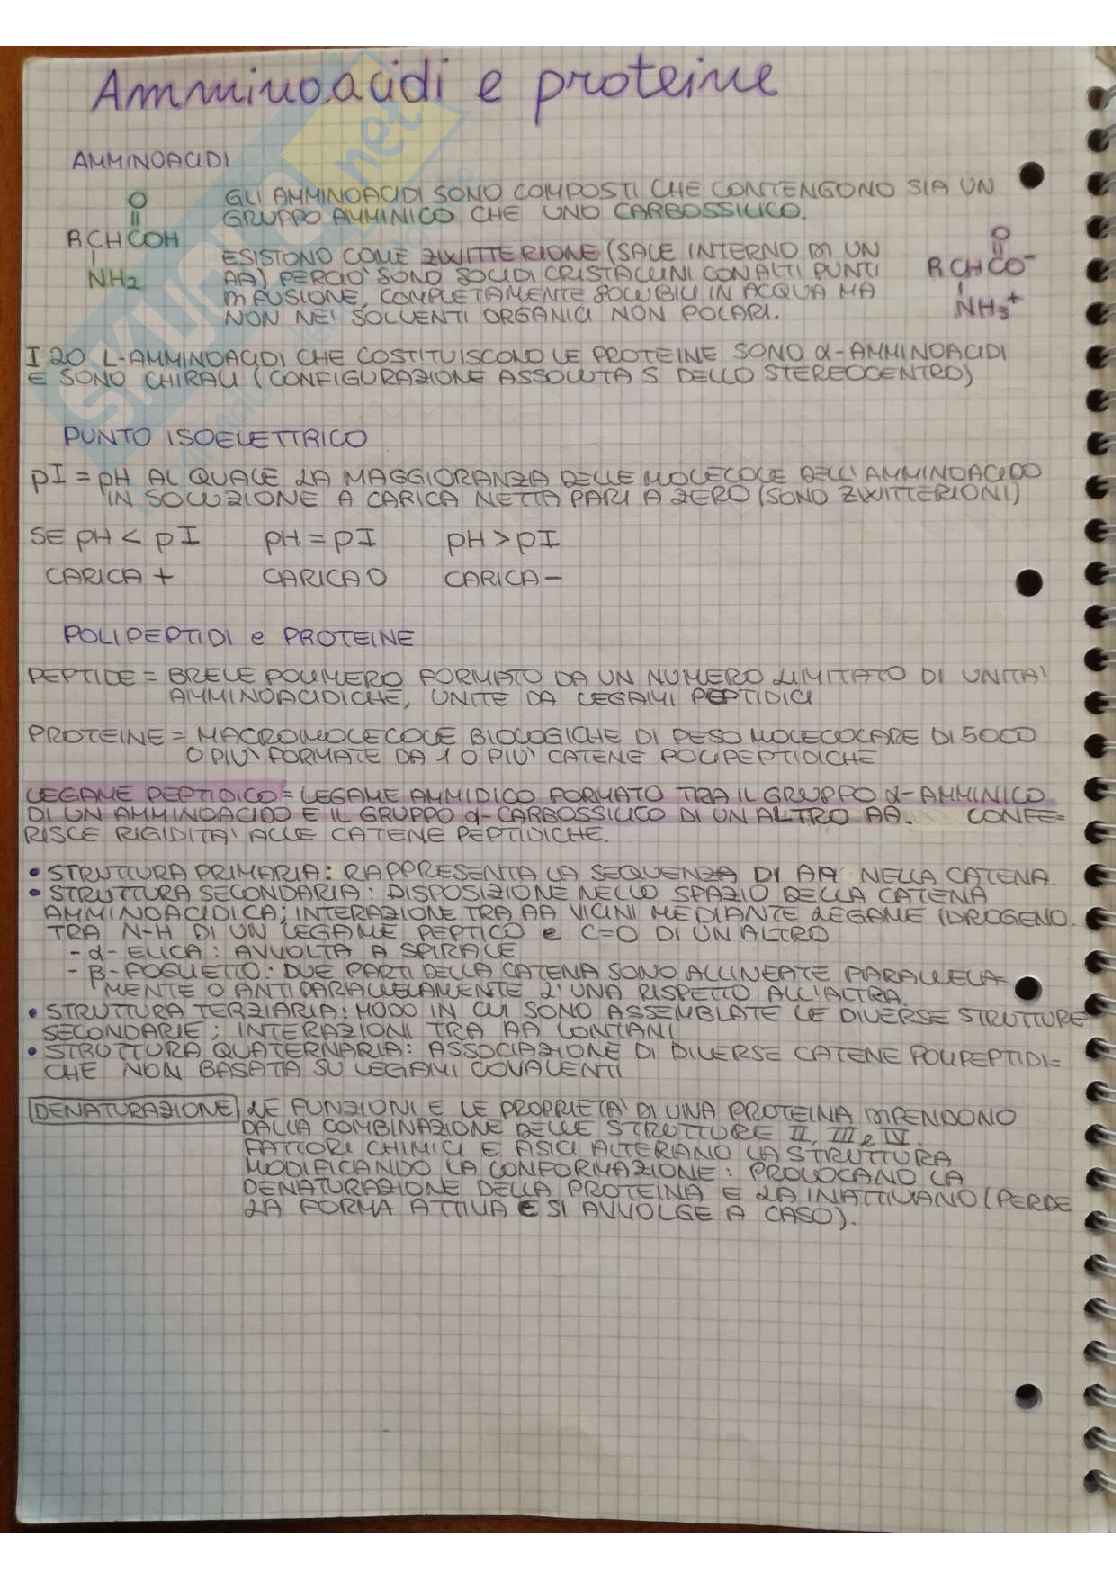 Amminoacidi e proteine
AMMINOACIDI
O
||
RCHCOH
NH2
GLI AMMINOACIDI SONO COMPOSTI CHE CONTENGONO SIA UN
GRUPPO AMMINICO CHE UNO CARBOSSILICO.
ESISTONO COME ZWITTERIONE (SALE INTERNO DI UN
AA) PERCIO' SONO SOLIDI CRISTALLINI CON ALTI PUNTI
DI FUSIONE, COMPLETAMENTE SOLUBILI IN ACQUA MA
NON NEI SOLVENTI ORGANICI NON POLARI.
O
||
RCHCO-
NH3+
I 20 L-AMMINOACIDI CHE COSTITUISCONO LE PROTEINE SONO α-AMMINOACIDI
E SONO CHIRALI (CONFIGURAZIONE ASSOLUTA S DELLO STEREOCENTRO)
PUNTO ISOELETTRICO
pI = pH AL QUALE LA MAGGIORANZA DELLE MOLECOLE DELL'AMMINOACIDO
IN SOLUZIONE A CARICA NETTA PARI A ZERO (SONO ZWITTERIONI)
SE pH < pI pH = pI pH > pI
CARICA + CARICA 0 CARICA -
POLIPEPTIDI e PROTEINE
PEPTIDE = BREVE POLIMERO FORMATO DA UN NUMERO LIMITATO DI UNITA'
AMMINOACIDICHE, UNITE DA LEGAMI PEPTIDICI
PROTEINE = MACROMOLECOLE BIOLOGICHE DI PESO MOLECOLARE DI 5000
O PIU' FORMATE DA 1 O PIU' CATENE POLIPEPTIDICHE
LEGAME PEPTIDICO = LEGAME AMMIDICO FORMATO TRA IL GRUPPO α-AMMINICO
DI UN AMMINOACIDO E IL GRUPPO α-CARBOSSILICO DI UN ALTRO AA. CONFE=
RISCE RIGIDITA' ALLE CATENE PEPTIDICHE.
• STRUTTURA PRIMARIA: RAPPRESENTA LA SEQUENZA DI AA NELLA CATENA
• STRUTTURA SECONDARIA: DISPOSIZIONE NELLO SPAZIO DELLA CATENA
AMMINOACIDICA; INTERAZIONE TRA AA VICINI MEDIANTE LEGAME IDROGENO
TRA N-H DI UN LEGAME PEPTICO e C=O DI UN ALTRO
- α-ELICA: AVVOLTA A SPIRALE
- β-FOGLIETTO: DUE PARTI DELLA CATENA SONO ALLINEATE PARALLELA=
MENTE O ANTIPARALLELAMENTE L'UNA RISPETTO ALL'ALTRA.
• STRUTTURA TERZIARIA: MODO IN CUI SONO ASSEMBLATE LE DIVERSE STRUTTURE
SECONDARIE; INTERAZIONI TRA AA LONTANI
• STRUTTURA QUATERNARIA: ASSOCIAZIONE DI DIVERSE CATENE POLIPEPTIDI=
CHE NON BASATA SU LEGAMI COVALENTI
DENATURAZIONE LE FUNZIONI E LE PROPRIETA' DI UNA PROTEINA DIPENDONO
DALLA COMBINAZIONE DELLE STRUTTURE II, III e IV.
FATTORI CHIMICI E FISICI ALTERANO LA STRUTTURA
MODIFICANDO LA CONFORMAZIONE: PROVOCANO LA
DENATURAZIONE DELLA PROTEINA E LA INATTIVANO (PERDE
LA FORMA ATTIVA E SI AVVOLGE A CASO).